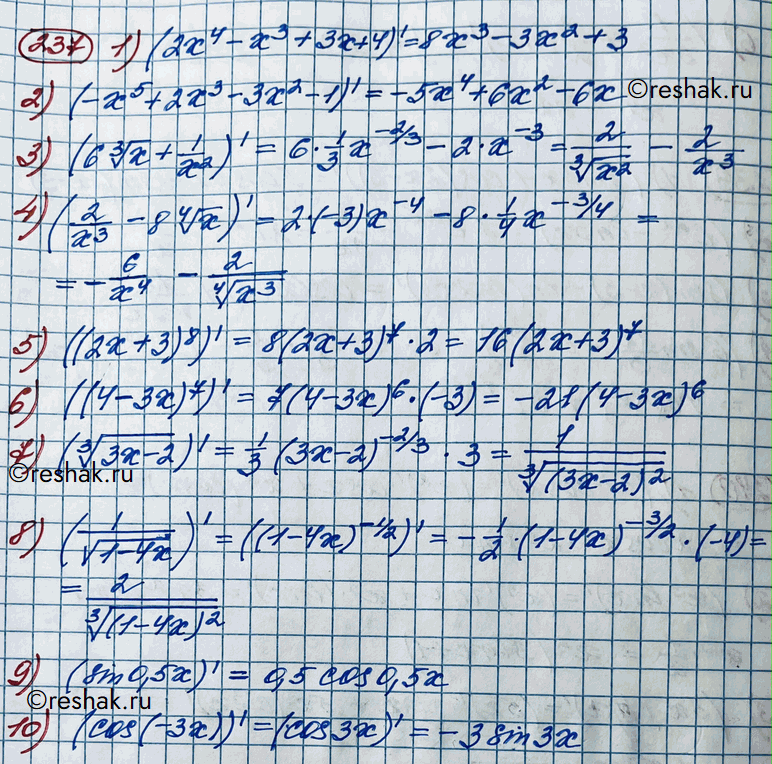 237 1) (2x⁴ - x³ + 3x + 4)' = 8x³ - 3x² + 3
2) (-x⁵ + 2x³ - 3x² - 1)' = -5x⁴ + 6x² - 6x ©reshak.ru
3) (6∛x + 1/x²)' = 6·1/3 x^(-2/3) - 2·x^(-3) = 2/∛(x²) - 2/x³
4) (2/x³ - 8∜x)' = 2·(-3)x^(-4) - 8·1/4 x^(-3/4) =
= -6/x⁴ - 2/∜(x³)
5) ((2x+3)⁸)' = 8(2x+3)⁷·2 = 16(2x+3)⁷
6) ((4-3x)⁷)' = 7(4-3x)⁶·(-3) = -21(4-3x)⁶
7) (∛(3x-2))' = 1/3 (3x-2)^(-2/3) · 3 = 1/∛((3x-2)²)
©reshak.ru
8) (1/√(1-4x))' = ((1-4x)^(-1/2))' = -1/2·(1-4x)^(-3/2)·(-4) =
= 2/∛((1-4x)²)
9) (sin 0,5x)' = 0,5 cos 0,5x
©reshak.ru
10) (cos(-3x))' = (cos 3x)' = -3 sin 3x